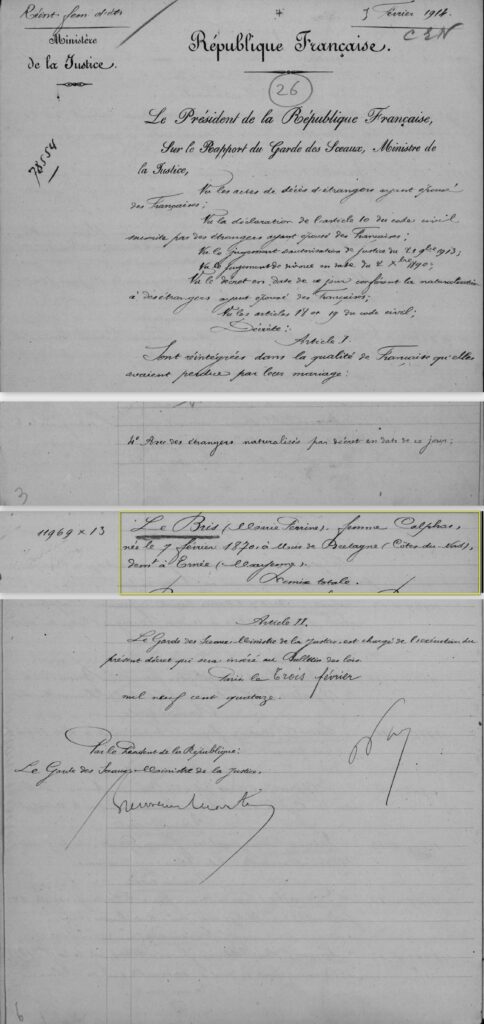 Réint. fem d'étr.
3 Février 1914.
CEN
Ministère
de la Justice.
République Française.
26
78554
Le Président de la République Française,
Sur le Rapport du Garde des Sceaux, Ministre de
la Justice,
Vu les actes de décès d'étrangers ayant épousé
des Françaises;
Vu la déclaration de l'article 10 du code civil
souscrite par des étrangers ayant épousé des Françaises;
Vu le jugement d'autorisation de justice du 9bre 1913;
Vu le jugement de divorce en date du Xbre
Vu le décret en date de ce jour conférant la naturalisation
à des étrangers ayant épousé des Françaises;
Vu les articles 18 et 19 du code civil;
Décrète:
Article I.
Sont réintégrées dans la qualité de Française qu'elles
avaient perdue par leur mariage:
4° Avec des étrangers naturalisés par décret en date de ce jour;
3
11969 x 13
Le Bris (Marie Perrine), femme Calphas,
née le 7 février 1870, à Mûr de Bretagne (Côtes du Nord),
demt à Ernée (Mayenne).
Remise totale.
Article II.
Le Garde des Sceaux, Ministre de la Justice, est chargé de l'exécution du
présent décret qui sera inséré au Bulletin des lois.
Paris le Trois février
mil neuf cent quatorze.
Par le Président de la République:
Le Garde des Sceaux, Ministre de la Justice.
6